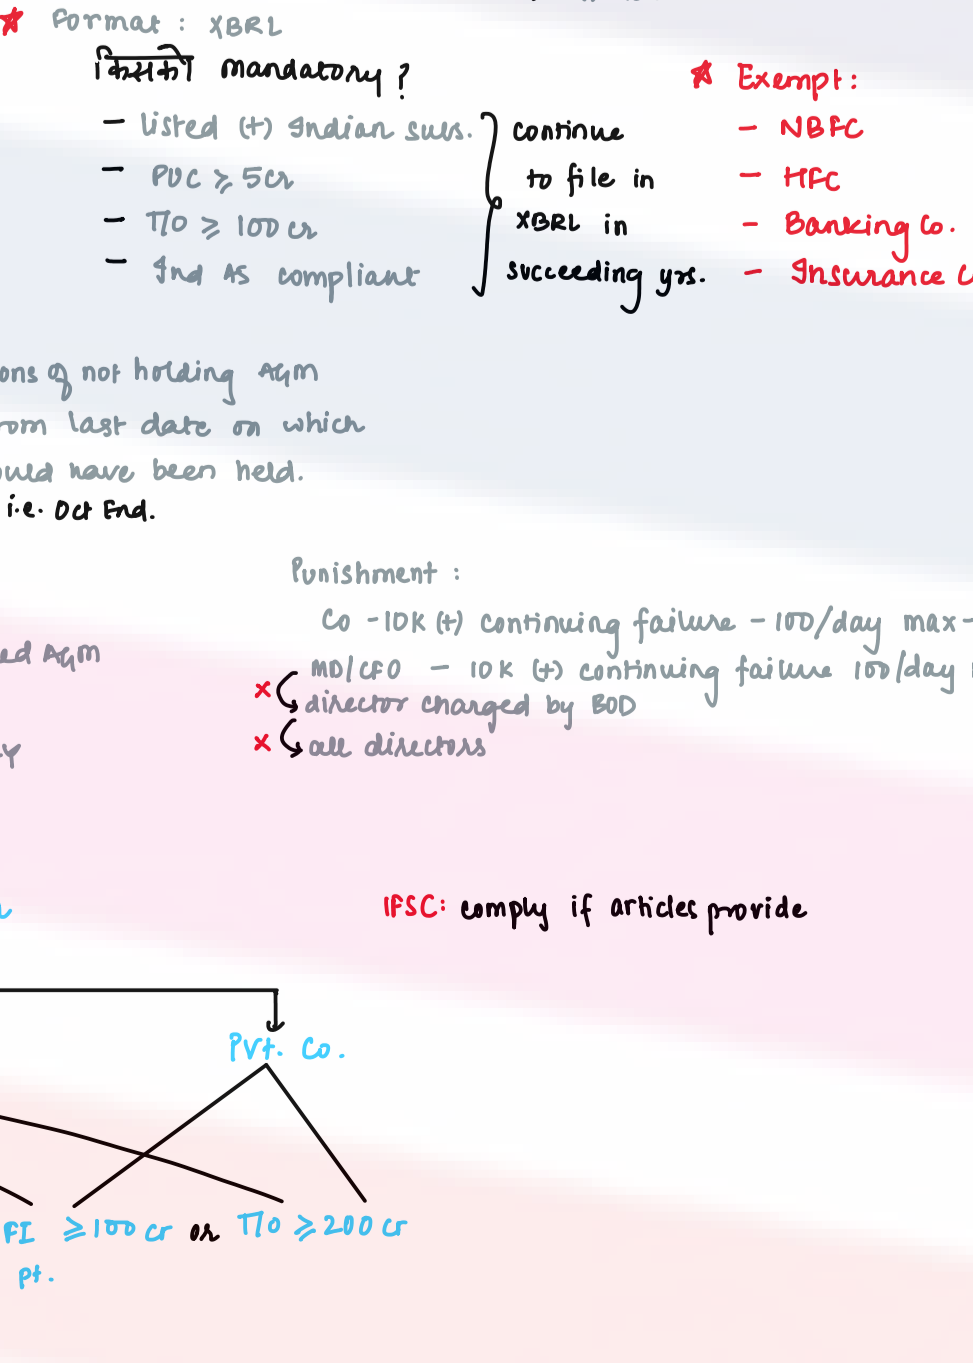 ★ Format : XBRL
किसको mandatory ?
★ Exempt :
– Listed (+) Indian subs.
– PUC ≥ 5cr
– T/O ≥ 100 cr
– Ind AS compliant
continue
to file in
XBRL in
succeeding yrs.
– NBFC
– HFC
– Banking Co.
– Insurance C
ons of not holding AGM
rom last date on which
ould have been held.
i.e. Oct End.
Punishment :
Co - 10K (+) continuing failure - 100/day max -
MD/CFO - 10K (+) continuing failure 100/day
x director charged by BOD
x all directors
ed AGM
y
IFSC: comply if articles provide
Pvt. Co.
FI ≥ 100 cr or T/O ≥ 200 cr
pt.